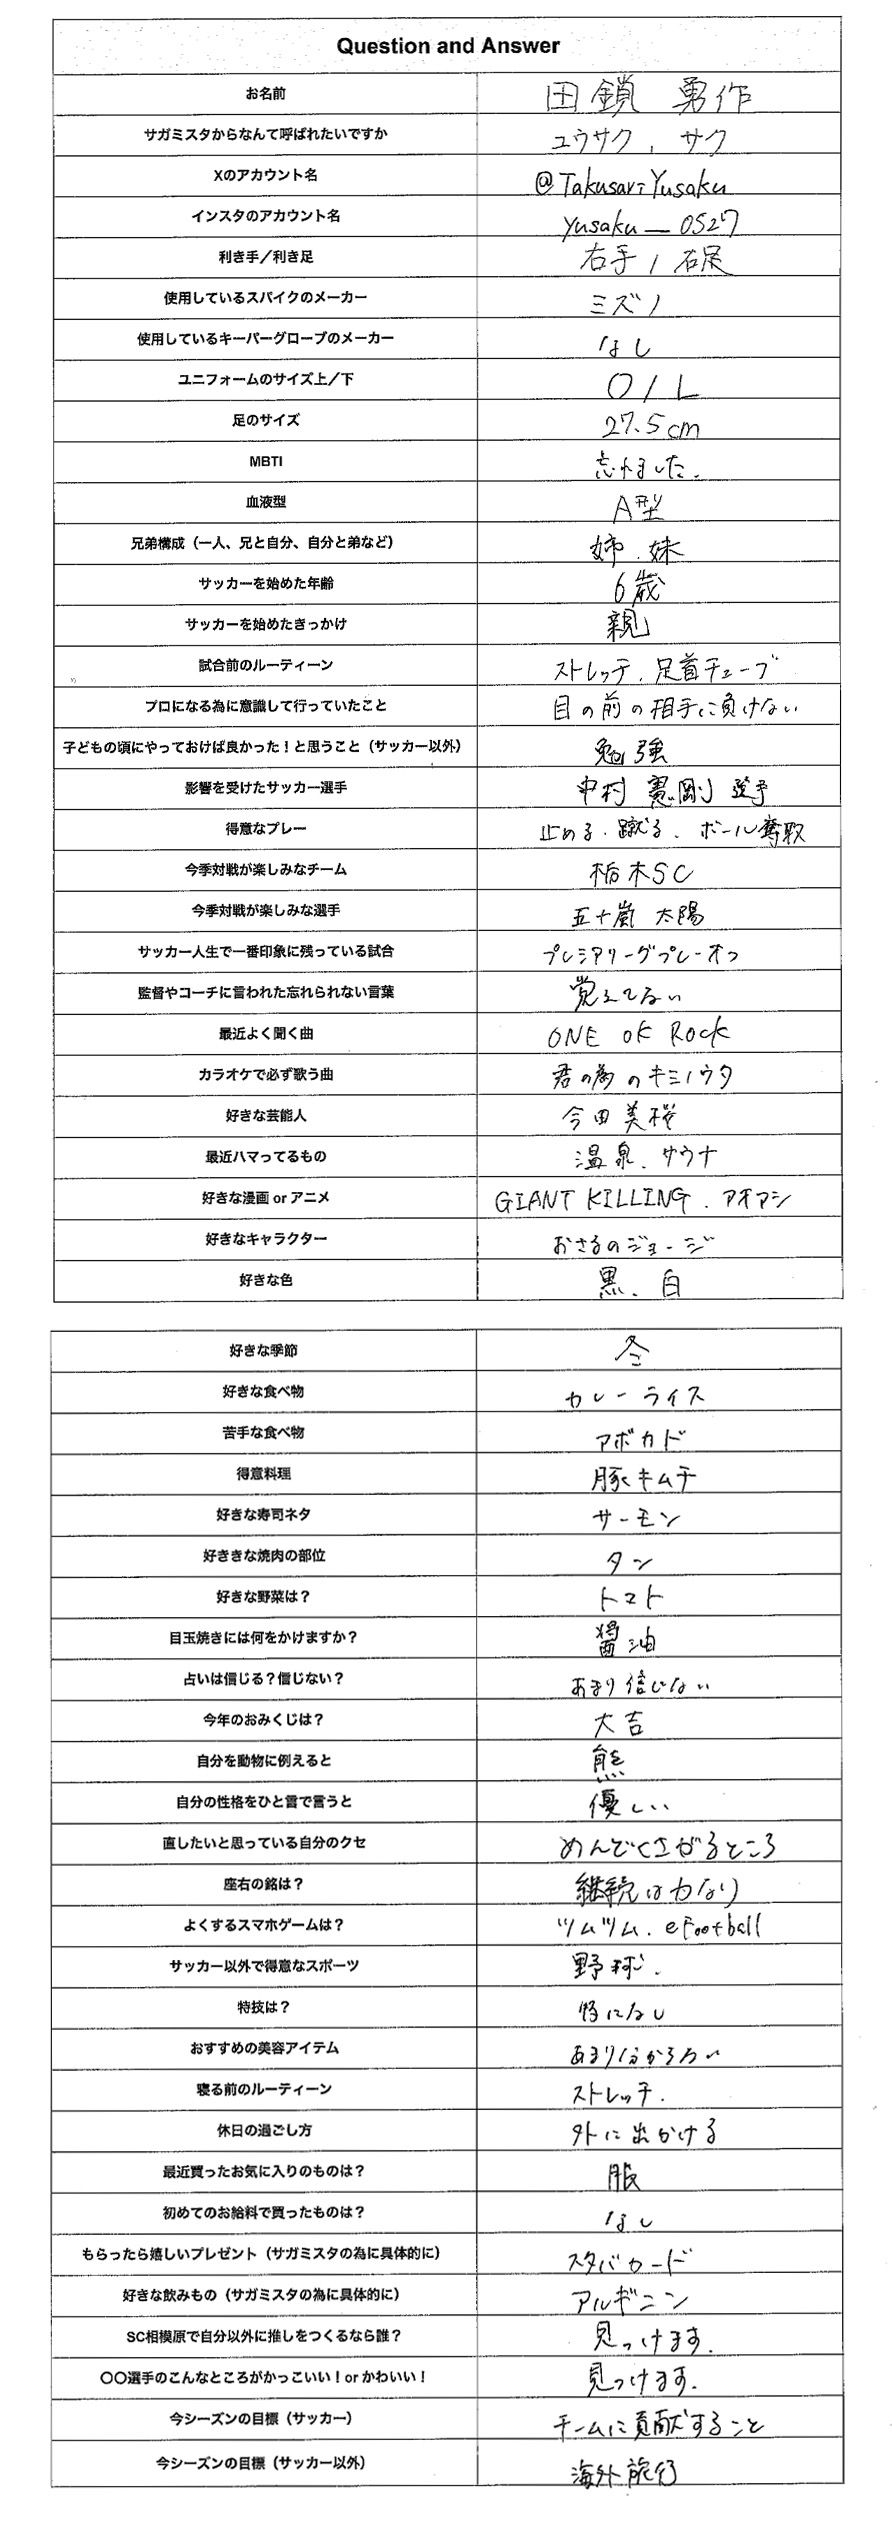 Question and Answer
お名前 田鎖 勇作
サガミスタからなんて呼ばれたいですか ユウサク、サク
Xのアカウント名 @TakusariYusaku
インスタのアカウント名 yusaku_0527
利き手/利き足 右手/右足
使用しているスパイクのメーカー ミズノ
使用しているキーパーグローブのメーカー なし
ユニフォームのサイズ上/下 O/L
足のサイズ 27.5cm
MBTI 忘れました.
血液型 A型
兄弟構成（一人、兄と自分、自分と弟など） 姉、妹
サッカーを始めた年齢 6歳
サッカーを始めたきっかけ 親
試合前のルーティーン ストレッチ、足首チューブ
プロになる為に意識して行っていたこと 目の前の相手に負けない
子どもの頃にやっておけば良かった！と思うこと（サッカー以外） 勉強
影響を受けたサッカー選手 中村 憲剛 選手
得意なプレー 止める・蹴る、ボール奪取
今季対戦が楽しみなチーム 栃木SC
今季対戦が楽しみな選手 五十嵐 太陽
サッカー人生で一番印象に残っている試合 プレミアリーグプレーオフ
監督やコーチに言われた忘れられない言葉 覚えてない
最近よく聞く曲 ONE OK ROCK
カラオケで必ず歌う曲 君の為のキミノウタ
好きな芸能人 今田美桜
最近ハマってるもの 温泉、サウナ
好きな漫画 or アニメ GIANT KILLING、アオアシ
好きなキャラクター おさるのジョージ
好きな色 黒、白
好きな季節 冬
好きな食べ物 カレーライス
苦手な食べ物 アボカド
得意料理 豚キムチ
好きな寿司ネタ サーモン
好ききな焼肉の部位 タン
好きな野菜は？ トマト
目玉焼きには何をかけますか？ 醤油
占いは信じる？信じない？ あまり信じない
今年のおみくじは？ 大吉
自分を動物に例えると 熊
自分の性格をひと言で言うと 優しい
直したいと思っている自分のクセ めんどくさがるところ
座右の銘は？ 継続は力なり
よくするスマホゲームは？ ツムツム、eFootball
サッカー以外で得意なスポーツ 野球.
特技は？ 特になし
おすすめの美容アイテム あまり分からない
寝る前のルーティーン ストレッチ.
休日の過ごし方 外に出かける
最近買ったお気に入りのものは？ 服
初めてのお給料で買ったものは？ なし
もらったら嬉しいプレゼント（サガミスタの為に具体的に） スタバカード
好きな飲みもの（サガミスタの為に具体的に） アルギニン
SC相模原で自分以外に推しをつくるなら誰？ 見つけます.
〇〇選手のこんなところがかっこいい！or かわいい！ 見つけます.
今シーズンの目標（サッカー） チームに貢献すること
今シーズンの目標（サッカー以外） 海外旅行